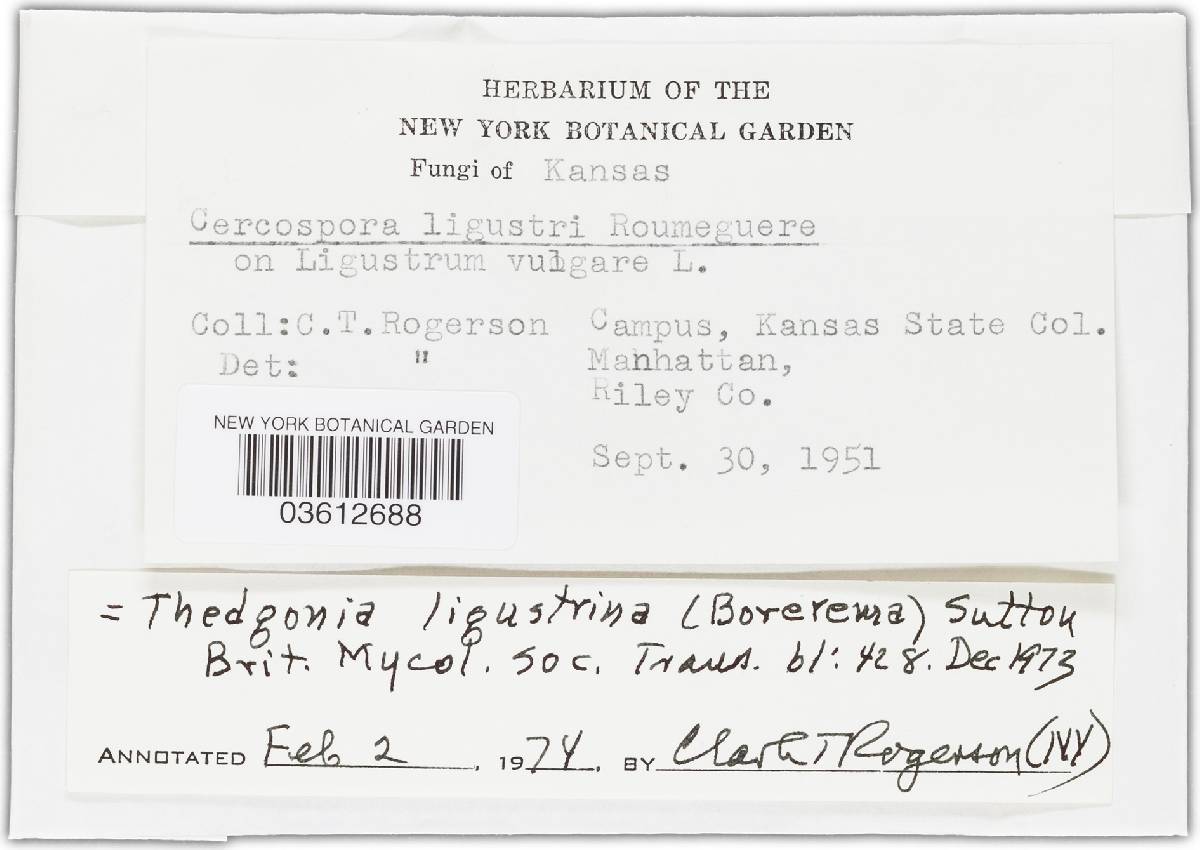 HERBARIUM OF THE
NEW YORK BOTANICAL GARDEN
Fungi of Kansas
Cercospora ligustri Roumeguere
on Ligustrum vulgare L.
Coll: C.T.Rogerson Campus, Kansas State Col.
Det: " Manhattan,
Riley Co.
Sept. 30, 1951
NEW YORK BOTANICAL GARDEN
03612688
= Thedgonia ligustrina (Borerema) Sutton
Brit. Mycol. Soc. Trans. 61: 428. Dec 1973
ANNOTATED Feb 2, 1974, BY Clark T Rogerson (NY)